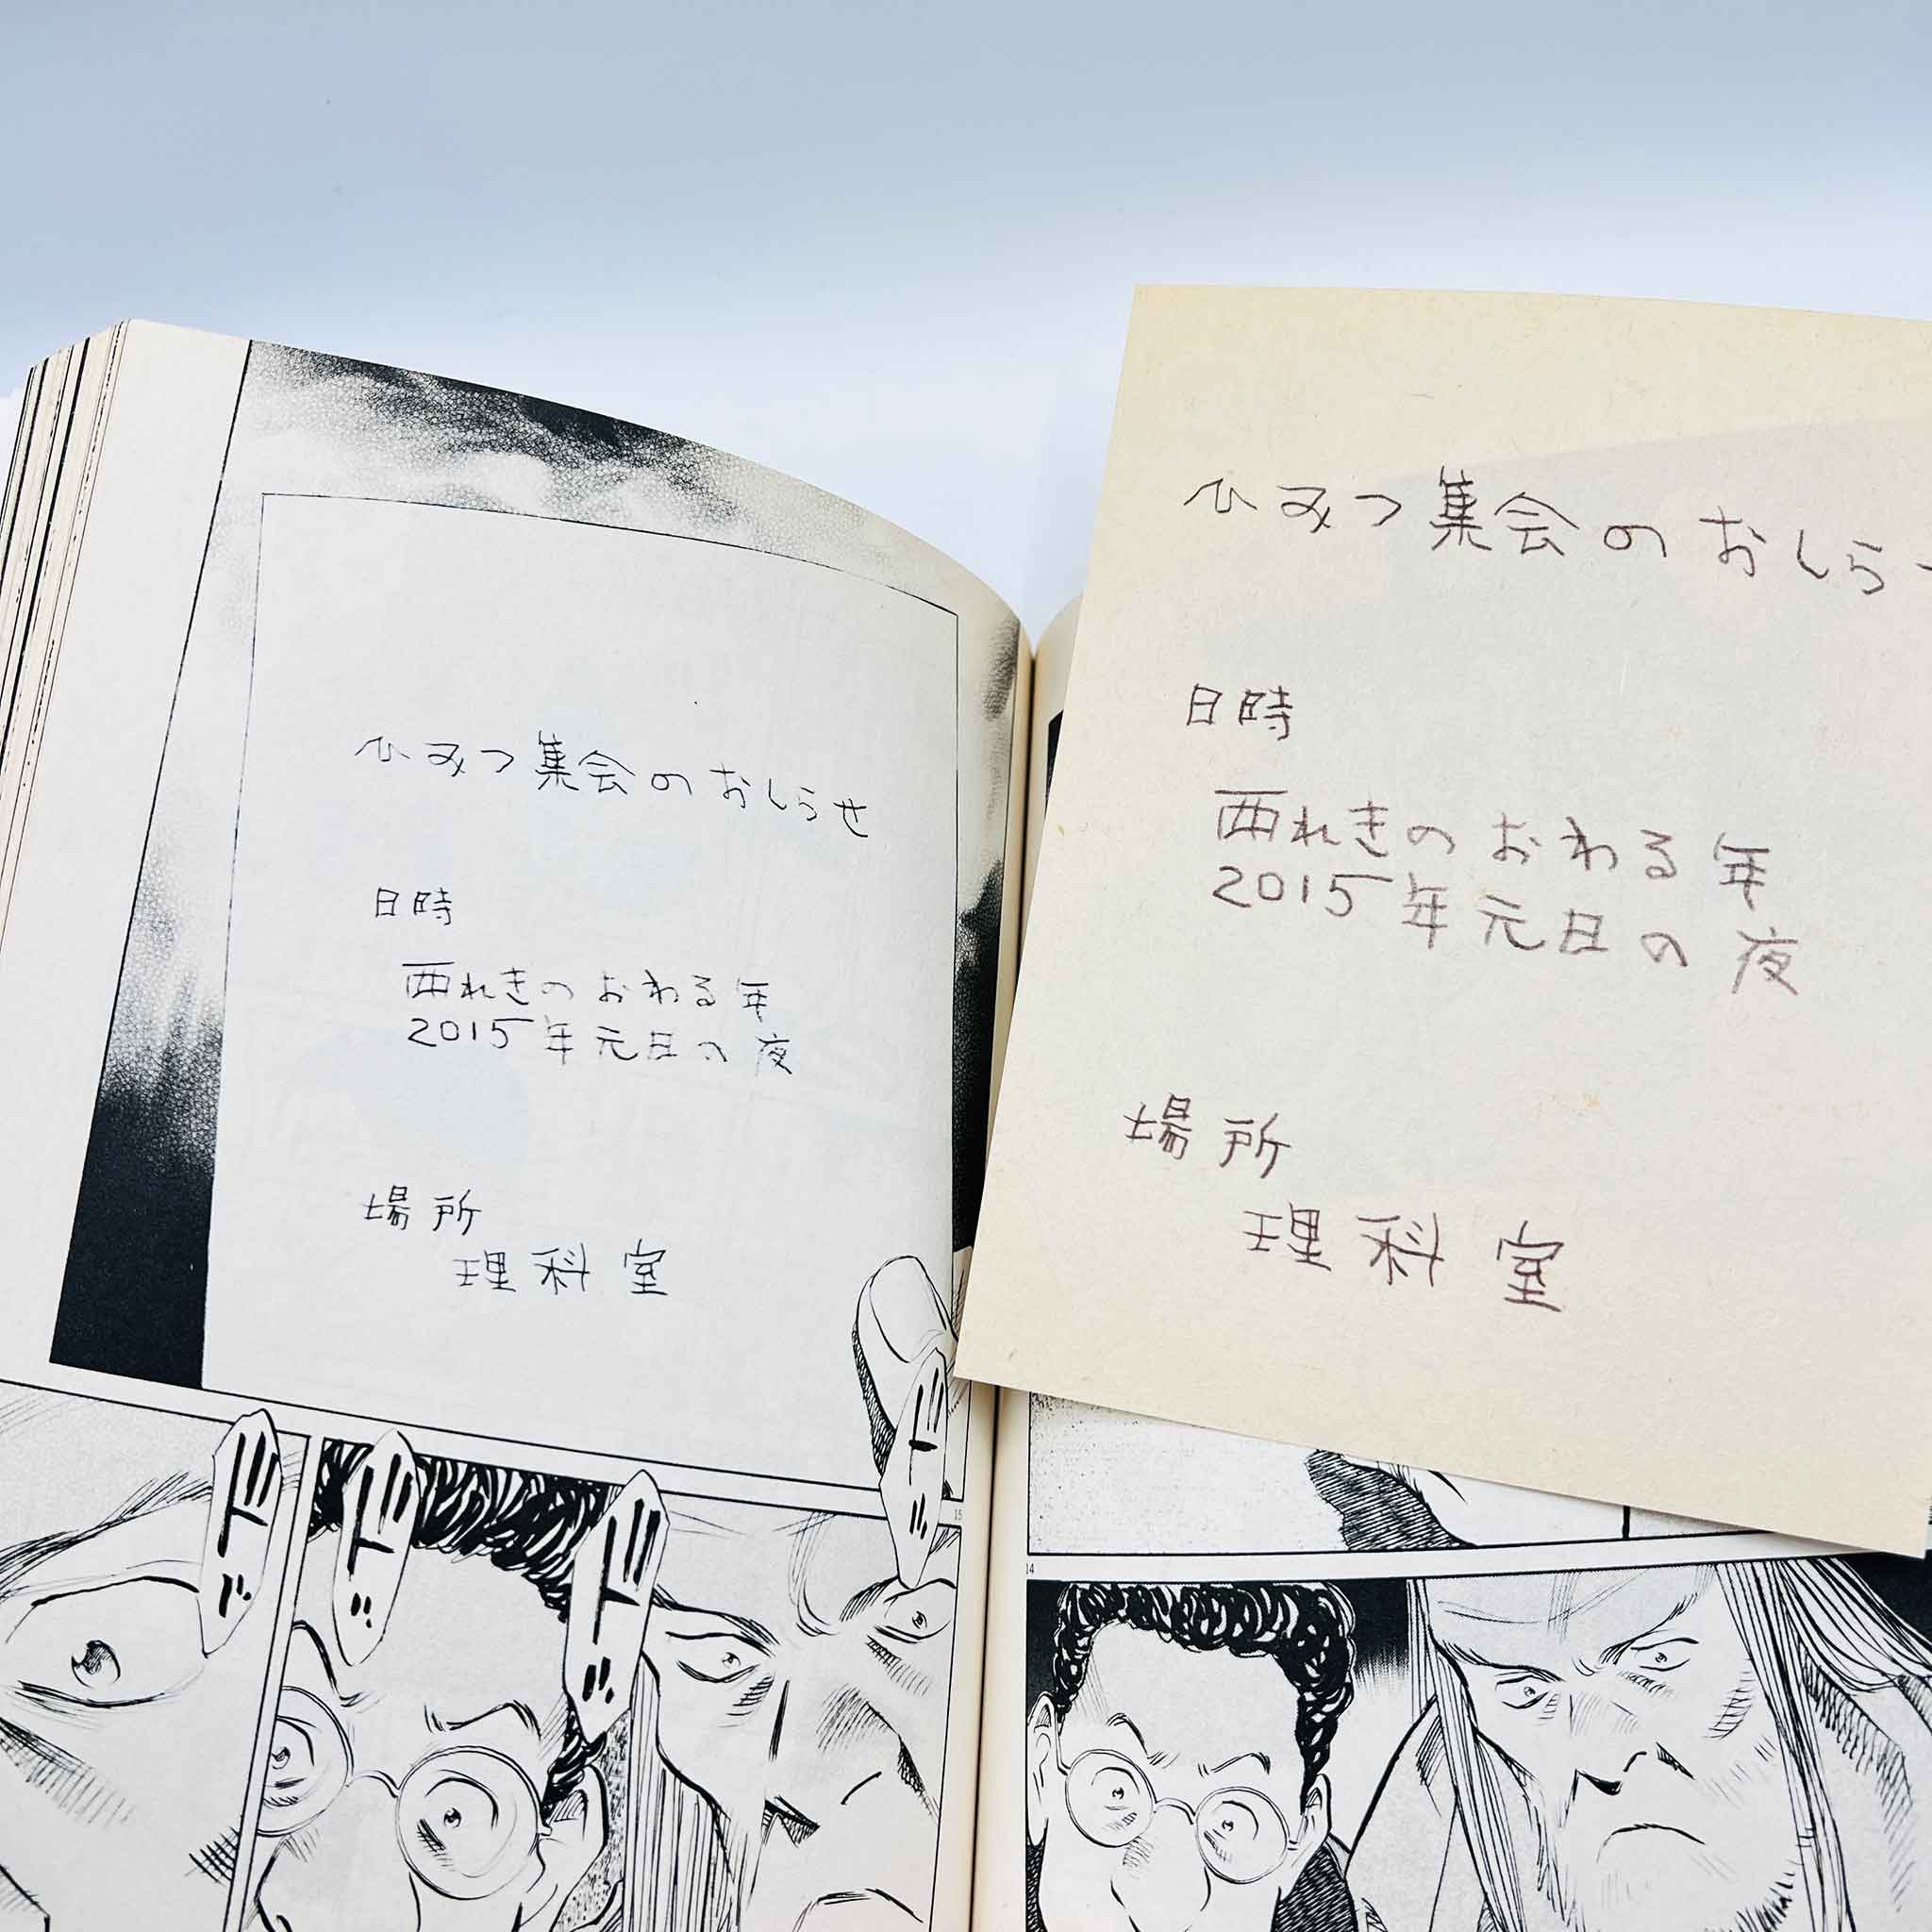 ひみつ集会のおしらせ
日時
西れきのおわる年
2015年元日の夜
場所
理科室
ドッ
ドッ
ドッ
ドーッ
15
ひみつ集会のおしらせ
日時
西れきのおわる年
2015年元日の夜
場所
理科室
14